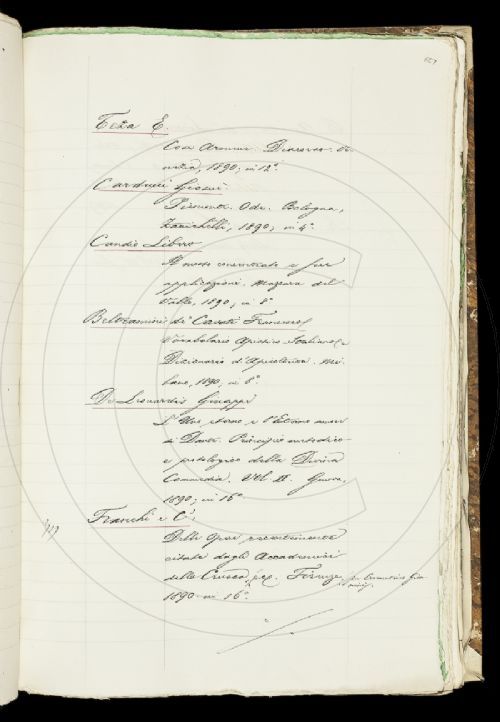 127
Teza E.
Cose Armene. Discorso. Ve-
nezia, 1890; in 12°.
Carducci Giosuè
Piemonte. Ode. Bologna,
Zanichelli, 1890; in 4°.
Candio Libero
applicazioni. Mazara del
Vallo, 1890; in 8°
Beltramini de' Casati Francesco
Vocabolario Apistico Italiano e
Dizionario d'Apicoltura. Mi-
lano, 1890, in 8°.
De Leonardis Giuseppe
L'Uno eterno e l'Eterno amore
di Dante. Principio metodico
e protologico della Divina
Commedia. Vol. II. Genova,
1890; in 16°
Franchi e C.i
Delle opere recentemente
citate dagli Accademici
della Crusca, ecc. Firenze
1890 in 16°.